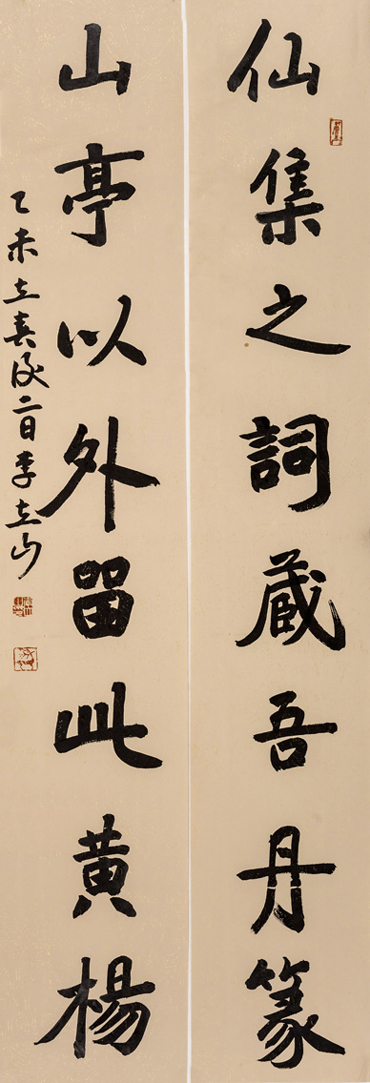 仙集之詞蔵吾丹篆
山亭以外留此黄楊
乙未立春後二日李立山